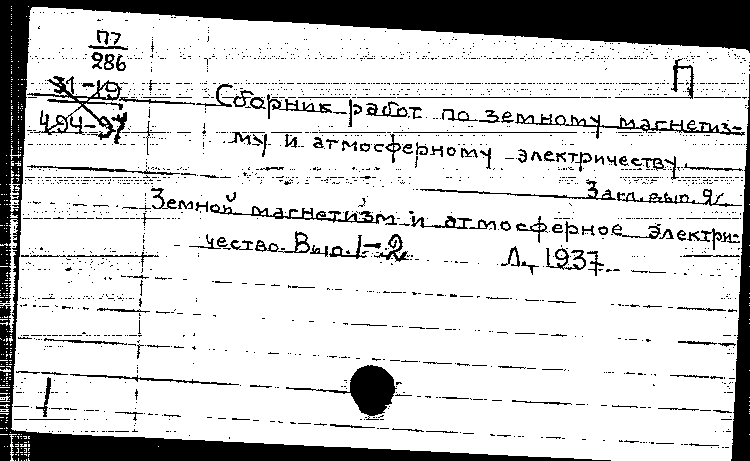 П7
286
31-19
494-97
П
Сборник работ по земному магнетиз-
му и атмосферному электричеству.
Загл. вып. 2/.
Земной магнетизм и атмосферное электри-
чество. Вып. 1-2 Л., 1937.
1